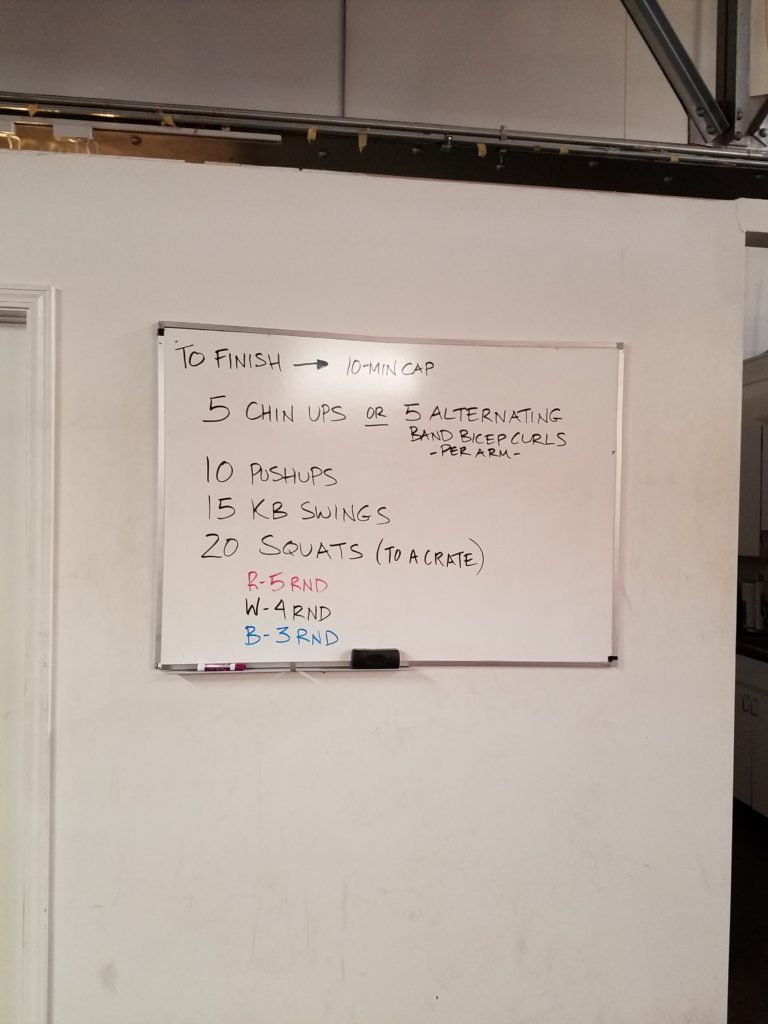 TO FINISH → 10-MIN CAP
5 CHIN UPS OR 5 ALTERNATING
BAND BICEP CURLS
-PER ARM-
10 PUSHUPS
15 KB SWINGS
20 SQUATS (TO A CRATE)
R-5 RND
W-4 RND
B-3 RND